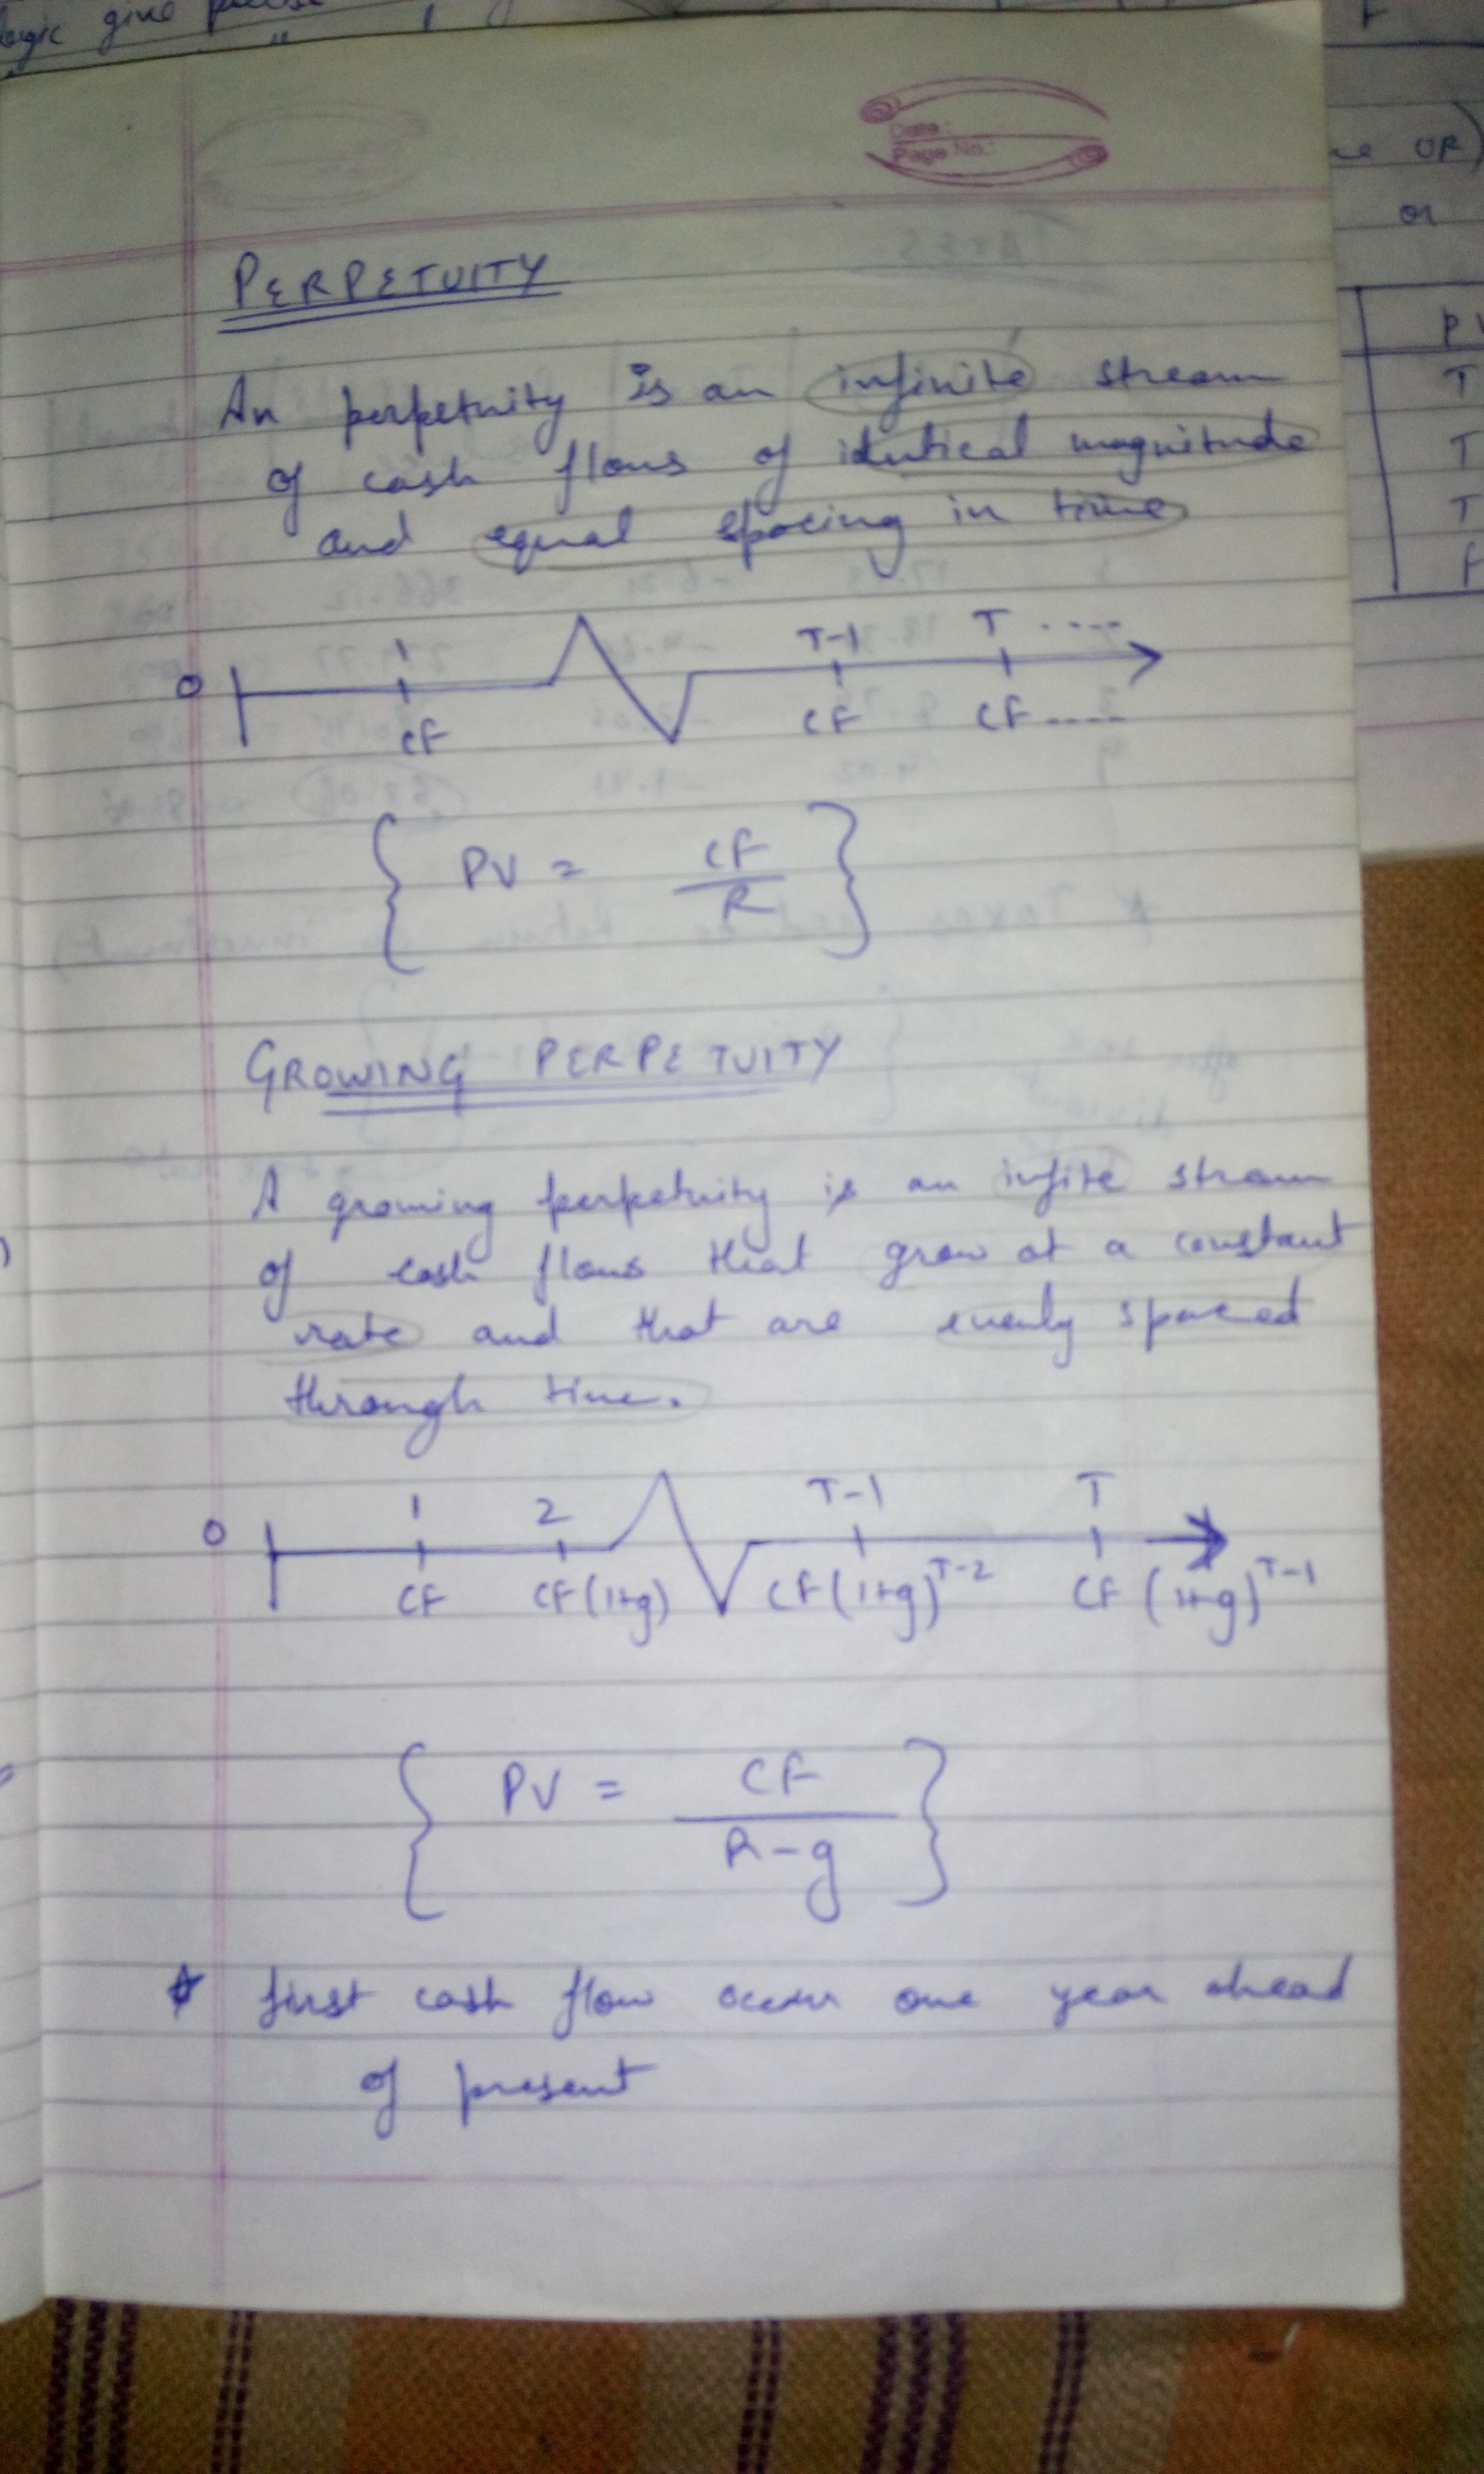 logic give precise
"
Date.:
Page No.:
PERPETUITY
An perpetuity is an infinite stream
of cash flows of identical magnitude
and equal spacing in time
0 1 T-1 T ....
CF CF CF ....
{ PV = CF/R }
GROWING PERPETUITY
A growing perpetuity is an infite stream
of cash flows that grow at a constant
rate and that are evenly spaced
through time.
0 1 2 T-1 T
CF CF(1+g) CF(1+g)^T-2 CF(1+g)^T-1
{ PV = CF/R-g }
* first cash flow occur one year ahead
of present
OR)
or
T
T
T
F